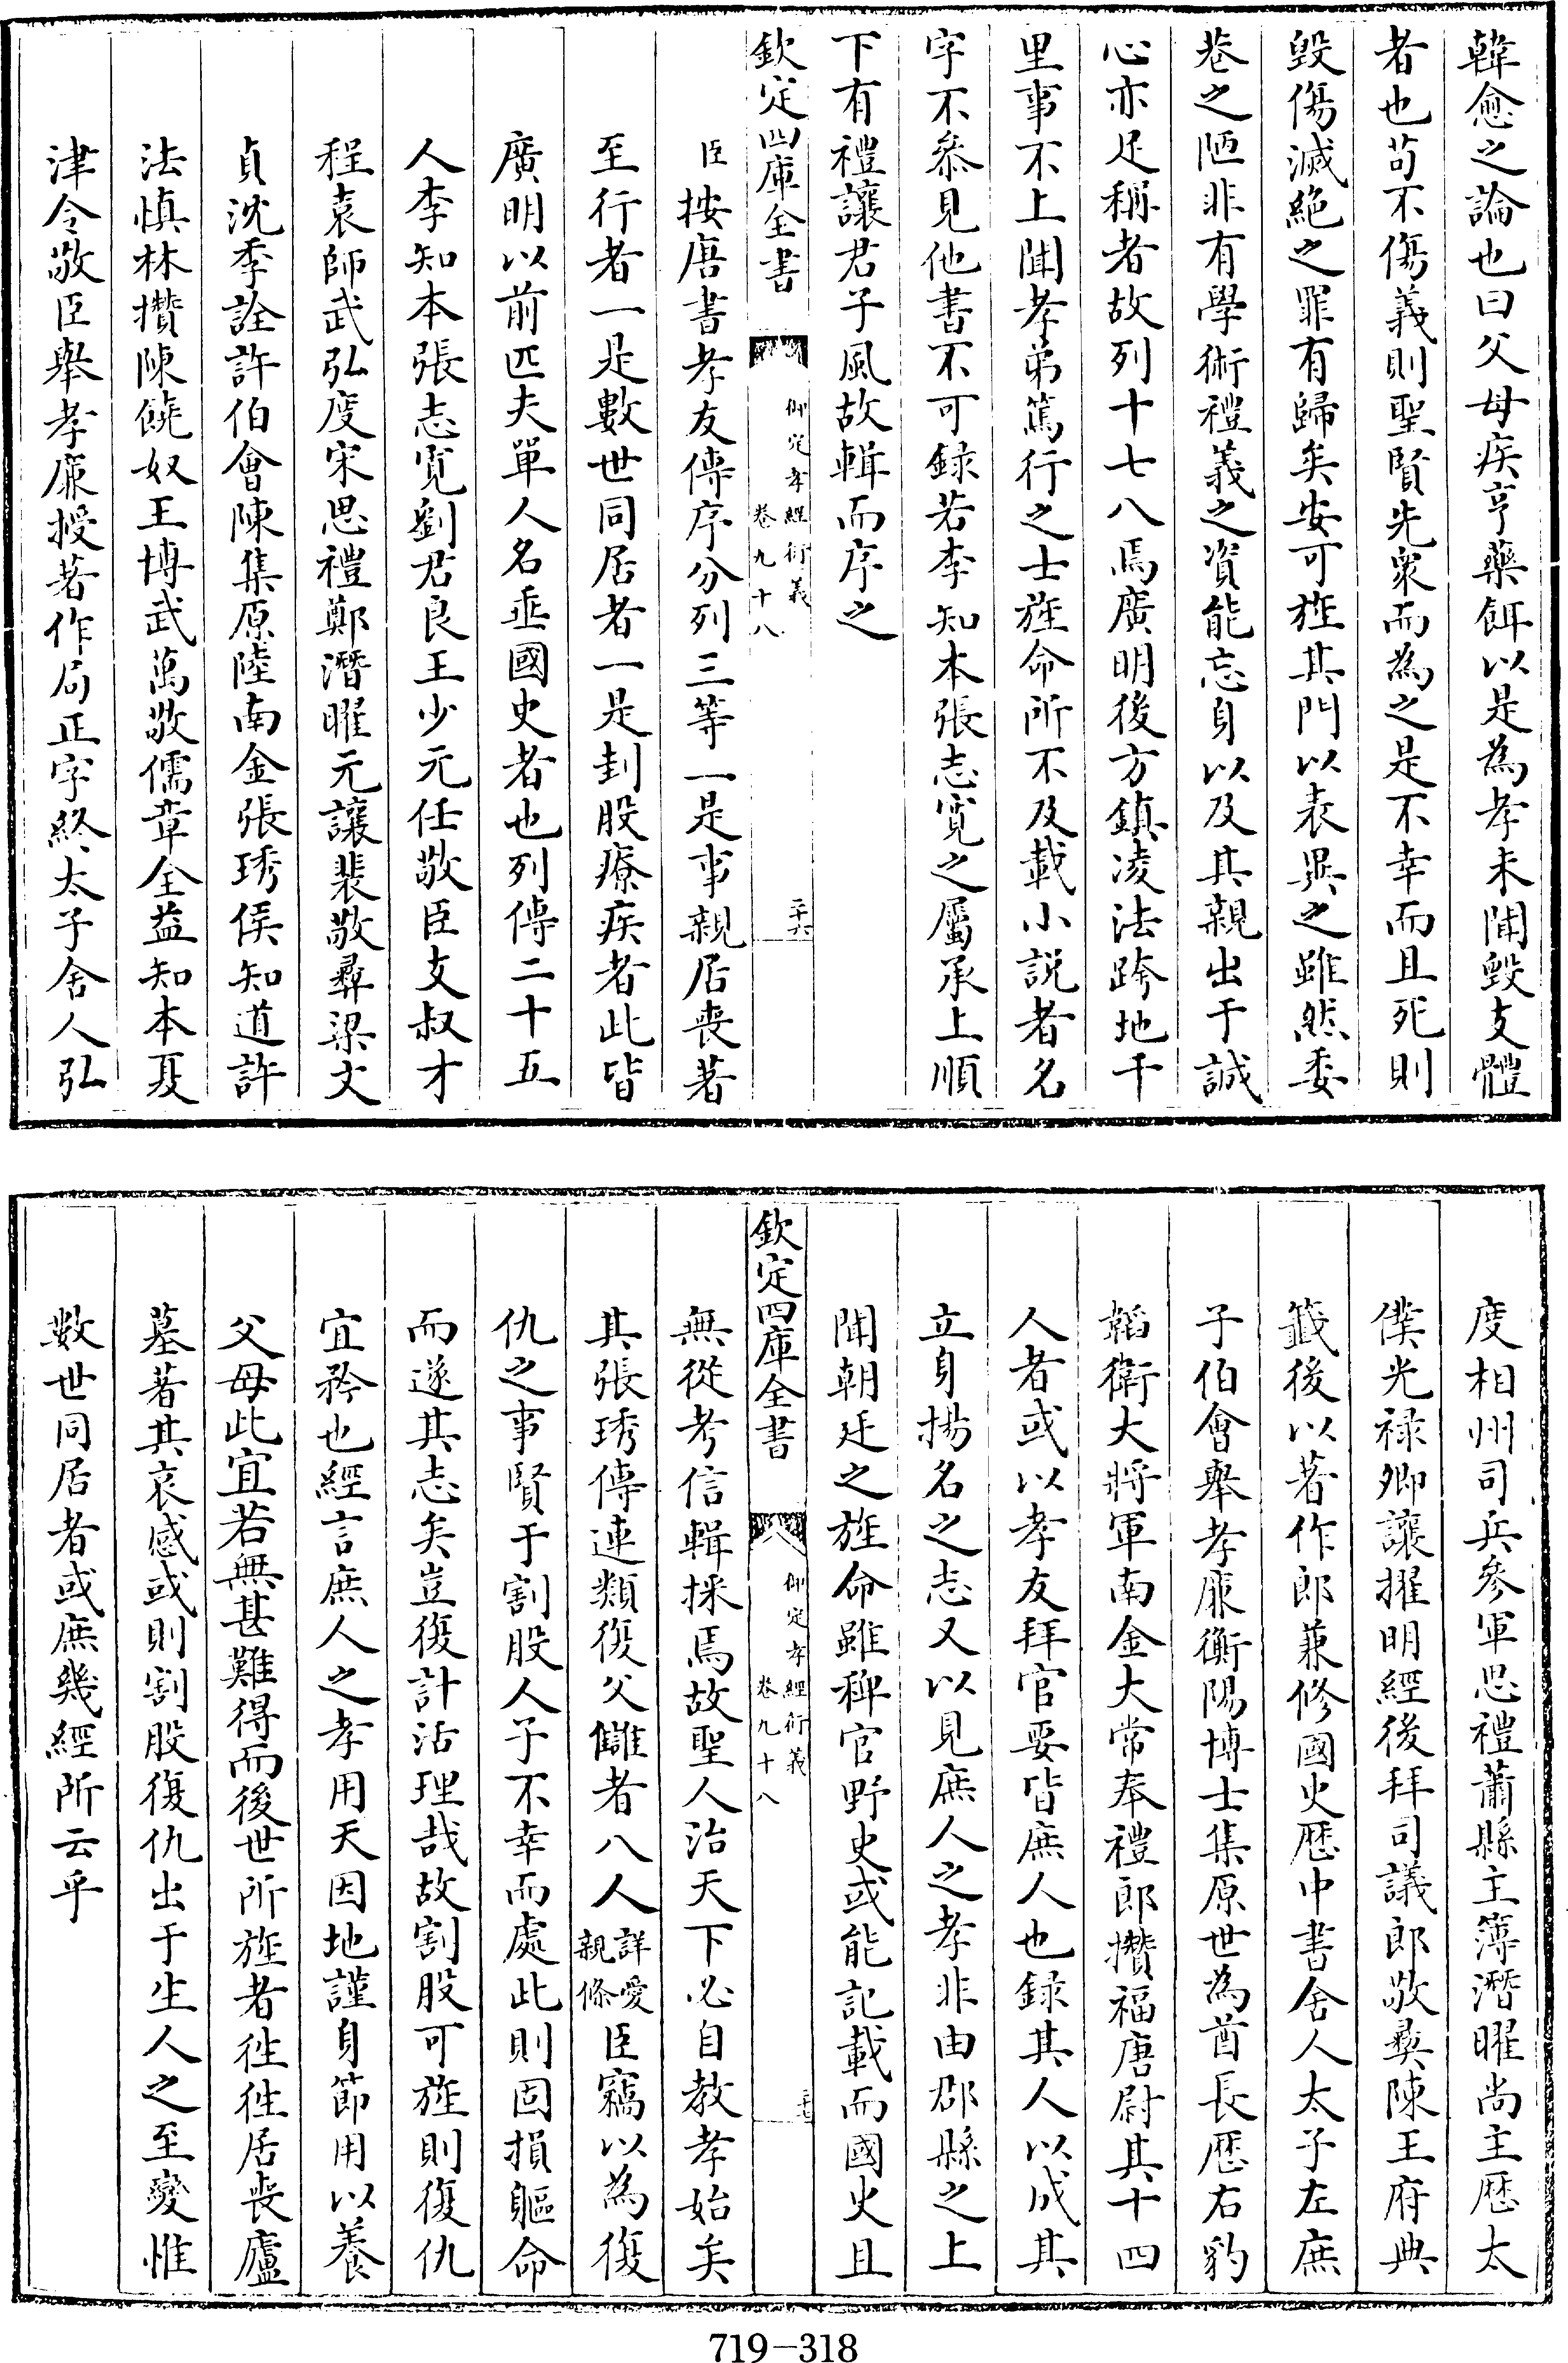 韓愈之論也曰父母疾亨藥餌以是為孝未聞毀支體
者也苟不傷義則聖賢先衆而為之是不幸而且死則
毀傷滅絶之罪有歸矣安可旌其門以表異之雖然委
巷之陋非有學術禮義之資能忘身以及其親出于誠
心亦足稱者故列十七八焉廣明後方鎮凌法跨地千
里事不上聞孝弟篤行之士旌命所不及載小説者名
字不叅見他書不可録若李知本張志寛之屬承上順
下有禮讓君子風故輯而序之
欽定四庫全書
御定孝經衍義
卷九十八
二十六
臣按唐書孝友傳序分列三等一是事親居喪著
至行者一是數世同居者一是刲股療疾者此皆
廣明以前匹夫單人名垂國史者也列傳二十五
人李知本張志寛劉君良王少元任敬臣支叔才
程袁師武弘度宋思禮鄭潛曜元讓裴敬彛梁文
貞沈季詮許伯會陳集原陸南金張琇侯知道許
法慎林攢陳饒奴王博武萬敬儒章全益知本夏
津令敬臣舉孝廉授著作局正字終太子舍人弘
度相州司兵參軍思禮蕭縣主簿潛曜尚主歴太
僕光禄卿讓擢明經後拜司議郎敬彛陳王府典
籖後以著作郎兼修國史歴中書舍人太子左庶
子伯會舉孝廉衡陽博士集原世為酋長歴右豹
韜衛大將軍南金大常奉禮郎攢福唐尉其十四
人者或以孝友拜官要皆庶人也録其人以成其
立身揚名之志又以見庶人之孝非由郡縣之上
聞朝廷之旌命雖稗官野史或能記載而國史且
欽定四庫全書
御定孝經衍義
卷九十八
二十七
無從考信輯採焉故聖人治天下必自教孝始矣
其張琇傳連類復父讎者八人詳愛親條臣竊以為復
仇之事賢于割股人子不幸而處此則固損軀命
而遂其志矣豈復計活理哉故割股可旌則復仇
宜矜也經言庶人之孝用天因地謹身節用以養
父母此宜若無甚難得而後世所旌者徃徃居喪廬
墓著其哀感或則割股復仇出于生人之至變惟
數世同居者或庶幾經所云乎
719-318